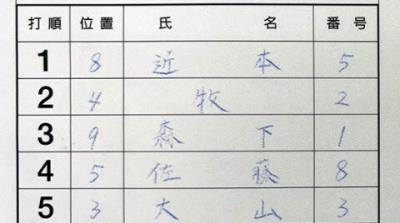 打順 位置 氏 名 番号
1 8 近 本 5
2 4 牧 2
3 9 森 下 1
4 5 佐 藤 8
5 3 大 山 3